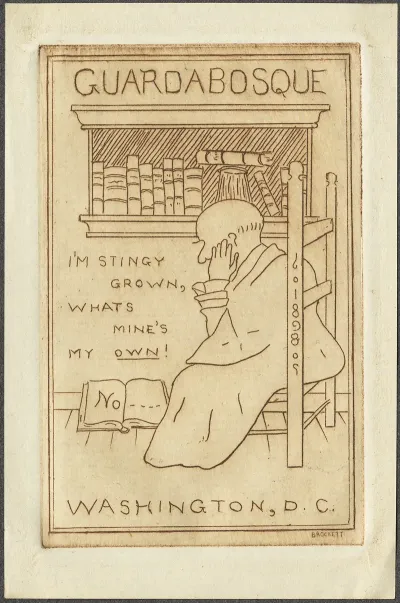 GUARDABOSQUE
I'M STINGY
GROWN,
WHATS
MINE'S
MY OWN!
No ----
WASHINGTON, D. C.
BROCKETT